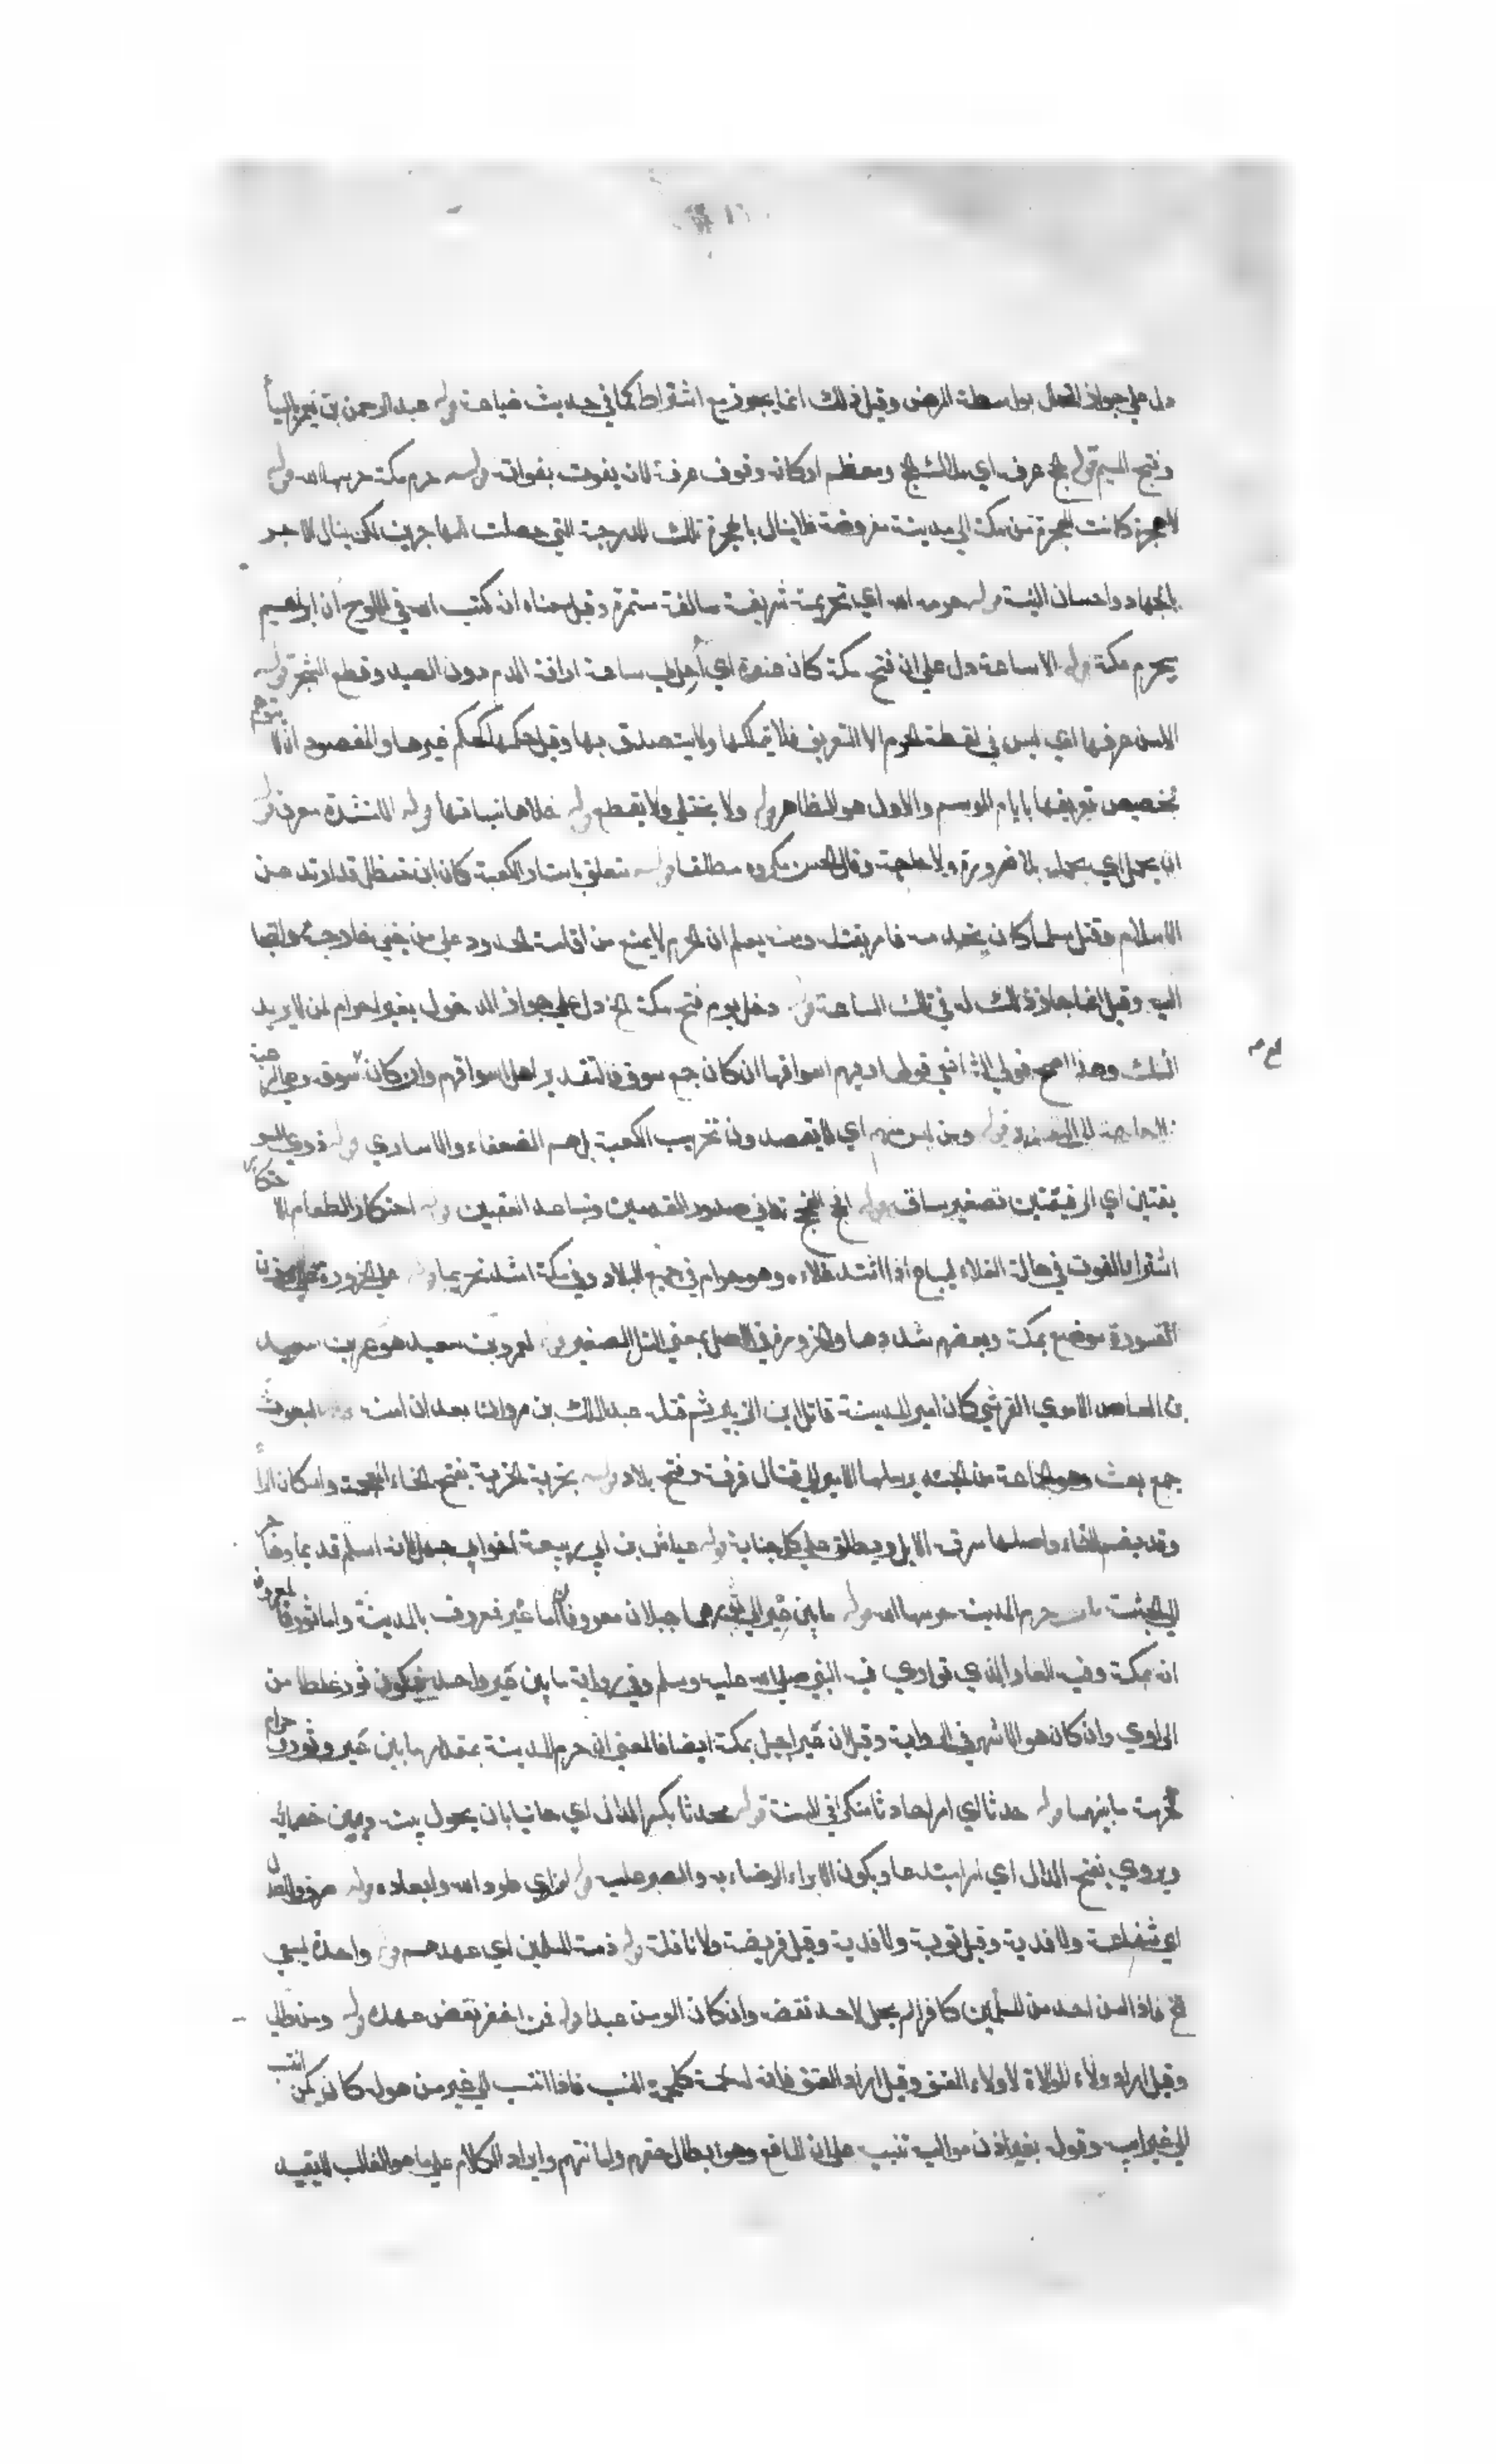 دل علي جواز التحلل بواسطة المرض وقيل ذلك انما يجوز مع اشتراط كما في حديث ضباعة قوله عبد الرحمن بن يعمر بالياء
وفتح الميم قوله الحج عرفة اي ملاك الحج ومعظم اركانه وقوف عرفة لانه يفوت بفواته قوله حرم مكة حرسها الله قوله
لا هجرة كانت الهجرة من مكة الي مدينة مفروضة فلا ينال بالهجرة تلك الدرجة التي حصلت للمهاجرين لكن ينال الاجر
بالجهاد واحسان النية قوله حرمه الله اي تحريمه شريعة سالفة مستمرة وقيل معناه انه كتب الله في اللوح أن ابراهيم
يحرم مكة قوله الا ساعة دل علي ان فتح مكة كان عنوة اي أحل لي ساعة اراقة الدم دون الصيد وقطع الشجر قوله
الا من عرفها اي ليس في لقطة الحرم الا التعريف فلا يتملكها ولا يتصدق بها وقيل حكمها كحكم غيرها والمقصود ان لا يتوهم
تخصيص تعريفها بايام الموسم والاول هو الظاهر قوله ولا يختلي ولا يقطع قوله خلاها نباتها قوله الا منشد معرف قوله
ان يحمل اي يحمله بلا ضرورة ولا حاجة وقال الحسن مكروه مطلقا قوله متعلق باستار الكعبة كان ابن خطل قد ارتد عن
الاسلام وقتل مسلما كان يخدمه فامر بقتله ومنه يعلم ان الحرم لا يمنع من اقامة الحدود علي من جني خارجه والتجا
اليه وقيل انما جاز ذلك له في تلك الساعة قوله دخل يوم فتح مكة الخ دل علي جواز الدخول بغير احرام لمن لا يريد
النسك وهذا اصح قولي الشافعي قوله وفيهم اسواقهم ان كان جمع سوق فالتقدير اهل اسواقهم وان كان سوقه وهي الرعية
فلا حاجة الي التقدير قوله ومن ليس منهم اي لا يقصدون تخريب الكعبة بل هم الضعفاء والاساري قوله ذو السو
يقتين اي الرقيقتين تصغير ساق قوله افحج الفحج تداني صدور القدمين وتباعد العقبين قوله احتكار الطعام الاحتكار
اشتراء القوت في حالة الغلاء ليباع اذا اشتد غلاءه وهو حرام في جميع البلاد وفي مكة اشد تحريما قوله علي الحزورة
القسورة موضع بمكة وبعضهم شددها والحزور في الاصل بمعني التل الصغير قوله لعمرو بن سعيد هو عمرو بن سعيد
بن العاص الاموي القرشي كان امير المدينة قاتل ابن الزبير ثم قتله عبد الملك بن مروان بعد ان امنه قوله البعوث
جمع بعث وهو الجماعة من الجند يرسلها الامير الي قتال فرقة وفتح بلاد قوله بخربة الخربة بفتح الخاء المعجمة واسكان الراء
وقد يضم الخاء واصلها سرقة الابل ويطلق علي كل جناية قوله عياش بن ابي ربيعة اخو ابي جهل لامه اسلم قديما وهاجر
الي الحبشة باب حرم المدينة حرسها الله قوله ما بين عَير الي ثور هما جبلان معروفان اما عَير فمعروف بالمدينة واما ثور فالمعروف
انه بمكة وفيه الغار الذي تواري فيه النبي صلي الله عليه وسلم وفي رواية ما بين عَير واحد فيكون ثور غلطا من
الراوي وان كان هو الاشهر في الرواية وقيل ان عَير اجبل بمكة ايضا فالمعني ان حرم المدينة بمقدار ما بين عَير وثور حرام
كحرمة ما بينهما قوله حدثا اي امرا حادثا منكرا في السنة قوله محدثا بكسر الدال اي جانيا بان يحول بينه وبين خصمائه
ويروي بفتح الدال اي امرا مبتدعا ويكون الايواء الرضاء به والصبر عليه قوله لعن اي طرد الله وابعاده قوله صرف ولا عدل
اي شفاعة ولا فدية وقيل توبة ولا فدية وقيل فريضة ولا نافلة قوله ذمة المسلمين اي عهدهم قوله واحدة يسعي
الخ فاذا امن احد من المسلمين كافرا لم يحل لاحد نقضه وان كان المومن عبدا قوله فمن اخفر نقض عهده قوله ومن والي
وقيل اراد ولاء الموالاة لا ولاء العتق وقيل اراد العتق فانه لحمة كلحمة النسب فاذا انتسب الي غير من هو له كان كمن انتسب
الي غير ابيه وقوله بغير اذن مواليه تنبيه علي ان المانع وهو ابطال حقهم واهانتهم وايراد الكلام علي ما هو الغالب لا لتقييد